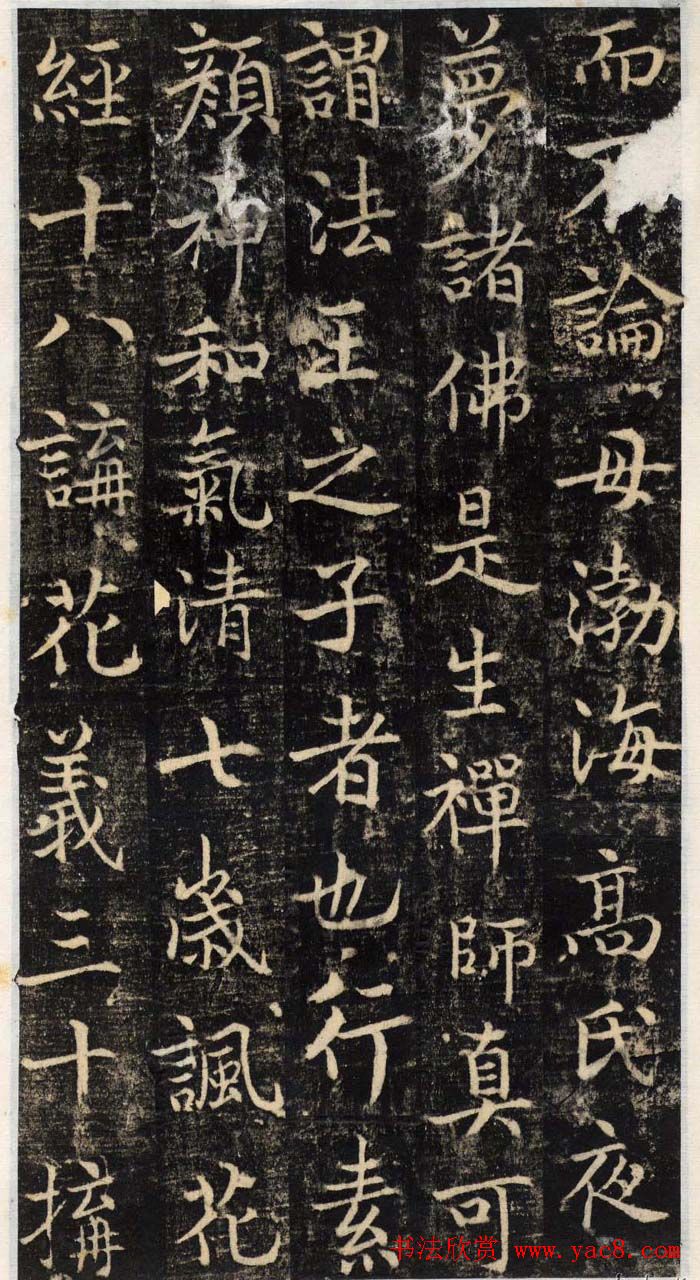 而不論母渤海高氏夜
夢諸佛是生禪師真可
謂法王之子者也行素
顏神和氣清七歲諷花
經十八講花義三十搆
书法欣赏 www.yac8.com